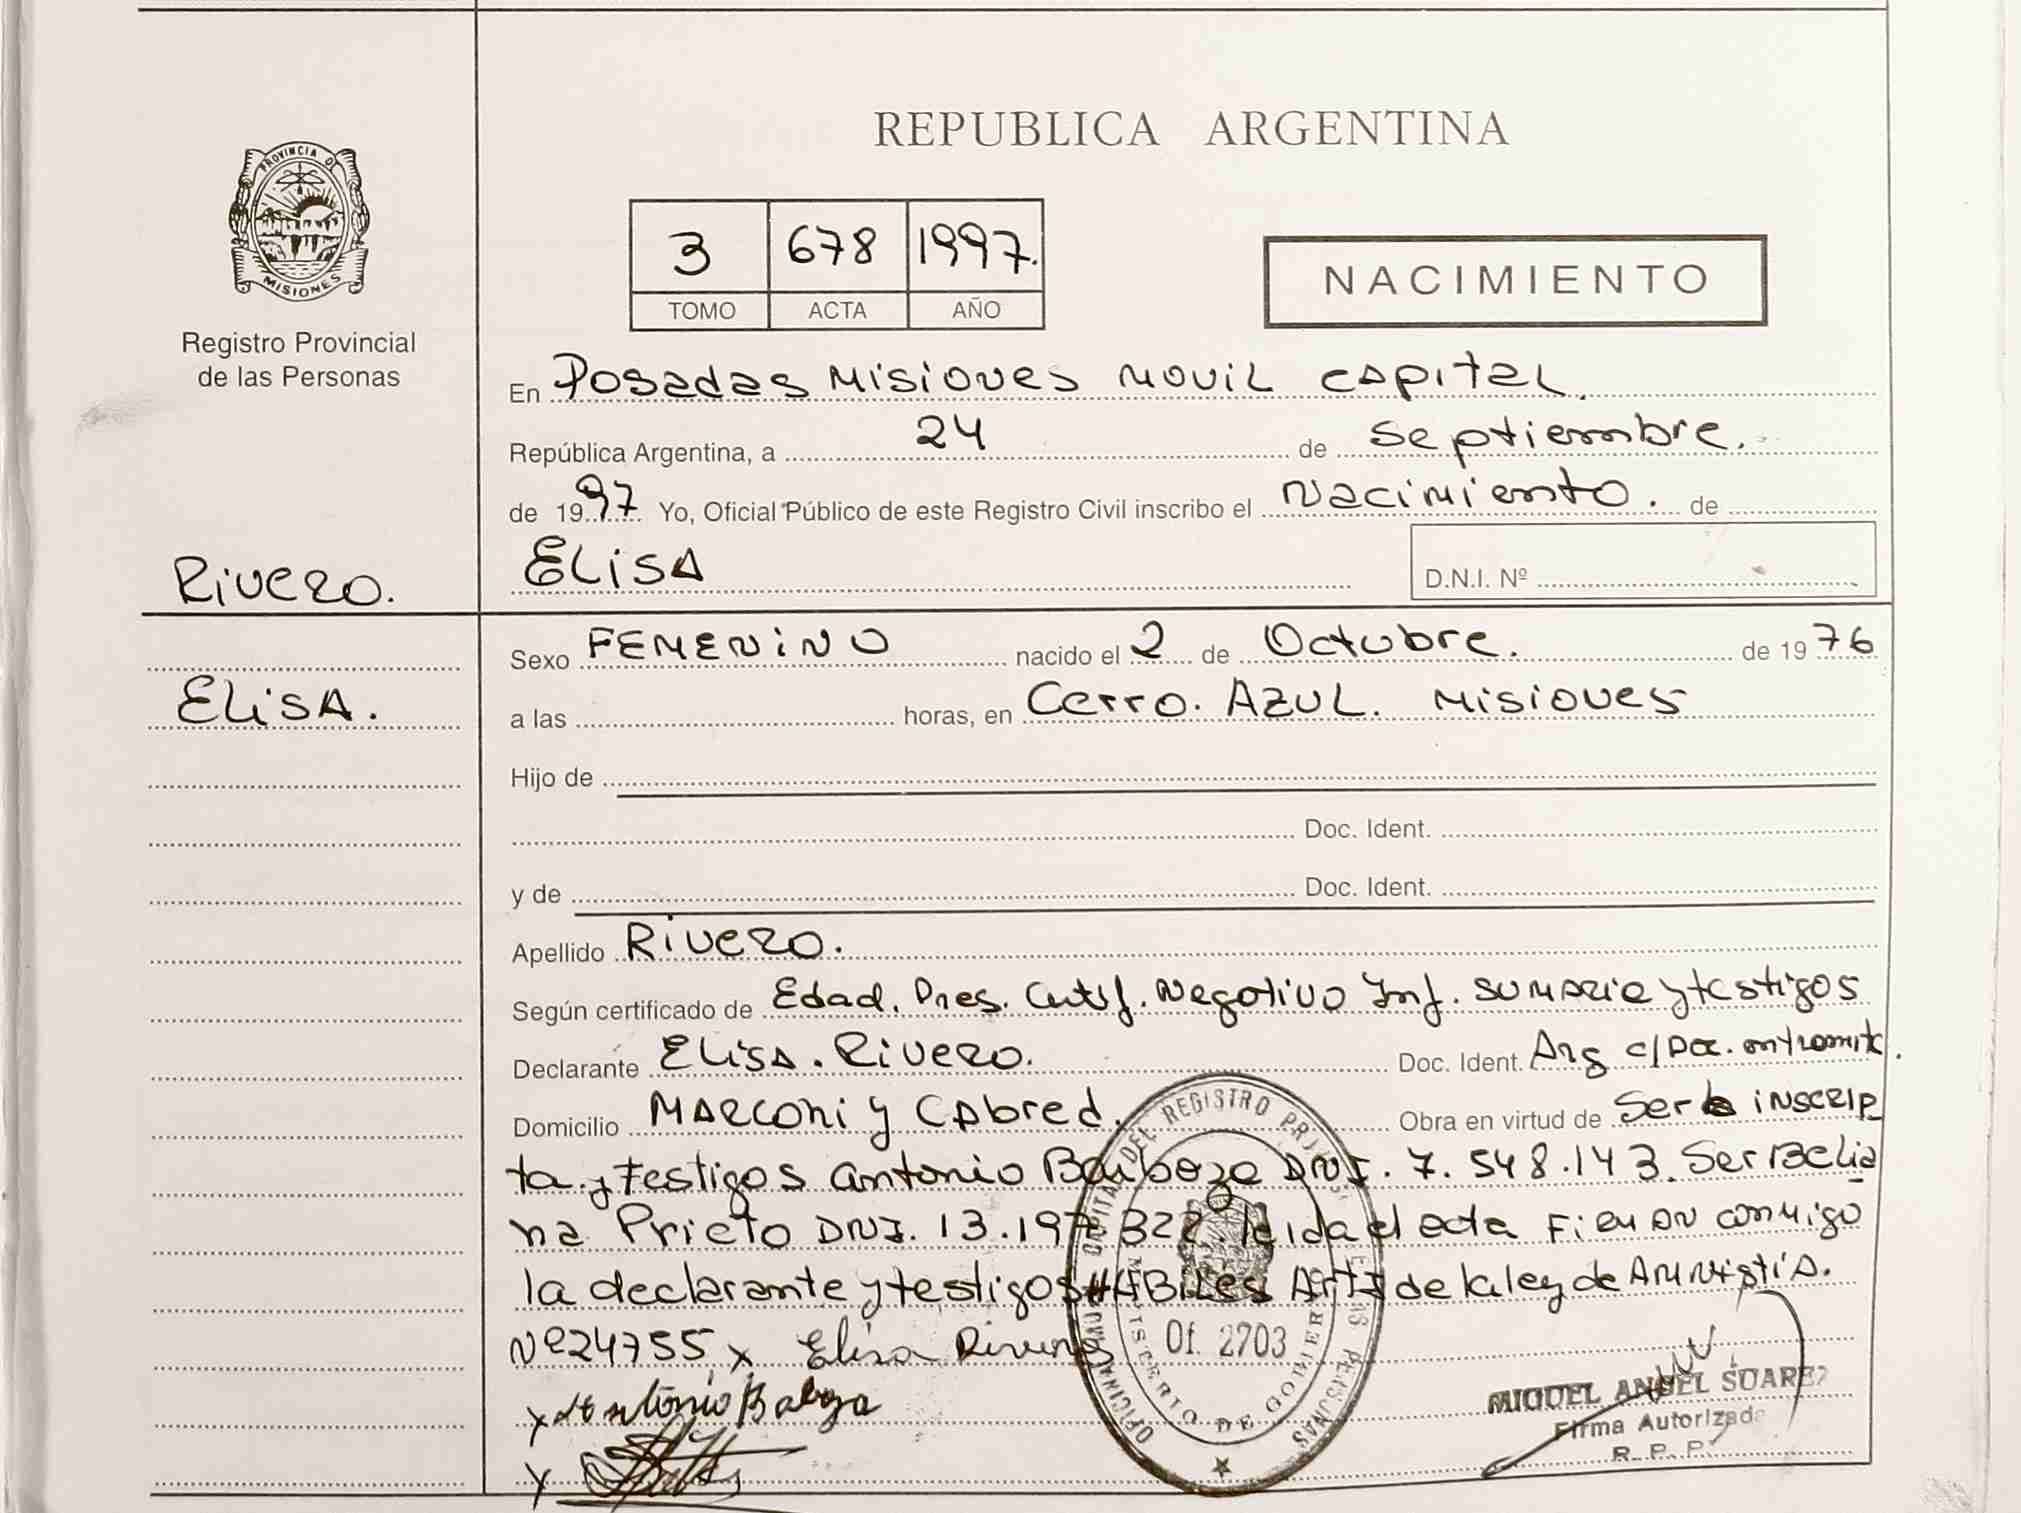 REPUBLICA ARGENTINA
PROVINCIA DE
MISIONES
Registro Provincial
de las Personas
3 678 1997.
TOMO ACTA AÑO
NACIMIENTO
En Posadas Misiones Movil Capital.
República Argentina, a 24 de Septiembre.
de 1997 Yo, Oficial Público de este Registro Civil inscribo el Nacimiento. de
Rivero. ELiSA D.N.I. Nº
Sexo FEMENiNO nacido el 2 de Octubre. de 1976
ELiSA. a las horas, en Cerro. AZUL. Misiones
Hijo de
Doc. Ident.
y de Doc. Ident.
Apellido Rivero.
Según certificado de Edad. Pres. Certif. Negativo Inf. sumarie y testigos
Declarante Elisa. Rivero. Doc. Ident. Arg c/Doc.
Domicilio Marconi y Cabred. Obra en virtud de Ser inscrip
ta y testigos Antonio Barboza DNI. 7.548.143. Ser Belia
na Prieto DNI. 13.197.322. leida el acta conmigo
la declarante y testigos HABiLes de la ley de Amnistía.
Nº24755 x Elisa Rivero
OFICINA MOVIL CAPITAL DEL REGISTRO DE LAS PERSONAS
MINISTERIO DE GOBIERNO
Of. 2703
MIGUEL ANGEL SUAREZ
Firma Autorizada
R. P. P.
x Antonio
Y